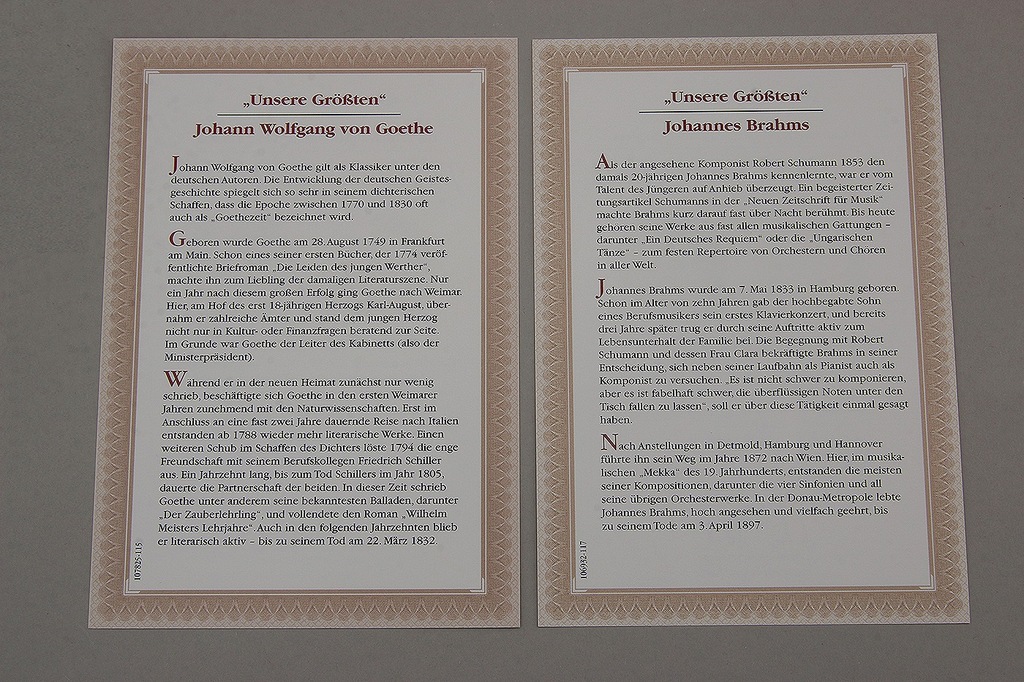 „Unsere Größten“
Johann Wolfgang von Goethe
Johann Wolfgang von Goethe gilt als Klassiker unter den
deutschen Autoren. Die Entwicklung der deutschen Geistes-
geschichte spiegelt sich so sehr in seinem dichterischen
Schaffen, dass die Epoche zwischen 1770 und 1830 oft
auch als „Goethezeit“ bezeichnet wird.
Geboren wurde Goethe am 28. August 1749 in Frankfurt
am Main. Schon eines seiner ersten Bücher, der 1774 veröf-
fentlichte Briefroman „Die Leiden des jungen Werther“,
machte ihn zum Liebling der damaligen Literaturszene. Nur
ein Jahr nach diesem großen Erfolg ging Goethe nach Weimar.
Hier, am Hof des erst 18-jährigen Herzogs Karl-August, über-
nahm er zahlreiche Ämter und stand dem jungen Herzog
nicht nur in Kultur- oder Finanzfragen beratend zur Seite.
Im Grunde war Goethe der Leiter des Kabinetts (also der
Ministerpräsident).
Während er in der neuen Heimat zunächst nur wenig
schrieb, beschäftigte sich Goethe in den ersten Weimarer
Jahren zunehmend mit den Naturwissenschaften. Erst im
Anschluss an eine fast zwei Jahre dauernde Reise nach Italien
entstanden ab 1788 wieder mehr literarische Werke. Einen
weiteren Schub im Schaffen des Dichters löste 1794 die enge
Freundschaft mit seinem Berufskollegen Friedrich Schiller
aus. Ein Jahrzehnt lang, bis zum Tod Schillers im Jahr 1805,
dauerte die Partnerschaft der beiden. In dieser Zeit schrieb
Goethe unter anderem seine bekanntesten Balladen, darunter
„Der Zauberlehrling“, und vollendete den Roman „Wilhelm
Meisters Lehrjahre“. Auch in den folgenden Jahrzehnten blieb
er literarisch aktiv – bis zu seinem Tod am 22. März 1832.
107825-115
„Unsere Größten“
Johannes Brahms
Als der angesehene Komponist Robert Schumann 1853 den
damals 20-jährigen Johannes Brahms kennenlernte, war er vom
Talent des Jüngeren auf Anhieb überzeugt. Ein begeisterter Zei-
tungsartikel Schumanns in der „Neuen Zeitschrift für Musik“
machte Brahms kurz darauf fast über Nacht berühmt. Bis heute
gehören seine Werke aus fast allen musikalischen Gattungen –
darunter „Ein Deutsches Requiem“ oder die „Ungarischen
Tänze“ – zum festen Repertoire von Orchestern und Chören
in aller Welt.
Johannes Brahms wurde am 7. Mai 1833 in Hamburg geboren.
Schon im Alter von zehn Jahren gab der hochbegabte Sohn
eines Berufsmusikers sein erstes Klavierkonzert, und bereits
drei Jahre später trug er durch seine Auftritte aktiv zum
Lebensunterhalt der Familie bei. Die Begegnung mit Robert
Schumann und dessen Frau Clara bekräftigte Brahms in seiner
Entscheidung, sich neben seiner Laufbahn als Pianist auch als
Komponist zu versuchen. „Es ist nicht schwer zu komponieren,
aber es ist fabelhaft schwer, die überflüssigen Noten unter den
Tisch fallen zu lassen“, soll er über diese Tätigkeit einmal gesagt
haben.
Nach Anstellungen in Detmold, Hamburg und Hannover
führte ihn sein Weg im Jahre 1872 nach Wien. Hier, im musika-
lischen „Mekka“ des 19. Jahrhunderts, entstanden die meisten
seiner Kompositionen, darunter die vier Sinfonien und all
seine übrigen Orchesterwerke. In der Donau-Metropole lebte
Johannes Brahms, hoch angesehen und vielfach geehrt, bis
zu seinem Tode am 3. April 1897.
106932-117